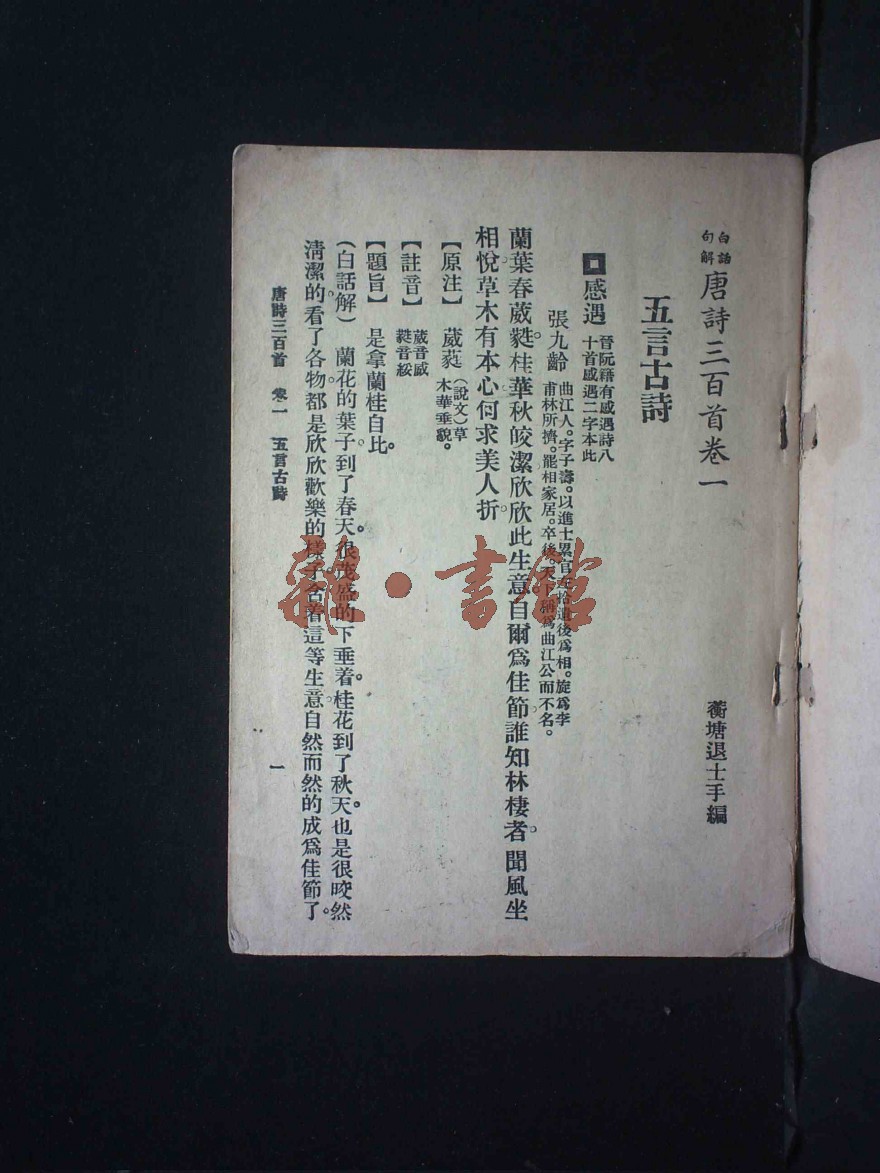 白話句解唐詩三百首卷一
蘅塘退士手編
五言古詩
感遇 晉阮籍有感遇詩八十首感遇二字本此
張九齡 曲江人。字子壽。以進士累官左拾遺後爲相。旋爲李甫林所擠。罷相家居。卒後。天下稱爲曲江公而不名。
蘭葉春葳蕤。桂華秋皎潔欣欣此生意自爾爲佳節誰知林棲者。聞風坐
相悅草木有本心何求美人折
【原注】 葳蕤 (說文)草木華垂貌。
【註音】 葳音威 蕤音綏
【題旨】 是拿蘭桂自比。
(白話解) 蘭花的葉子。到了春天。很茂盛的下垂着。桂花到了秋天。也是很晈然
清潔的。看了各物。都是欣欣歡樂的樣子。含着這等生意。自然而然的成爲佳節了。
唐詩三百首 卷一 五言古詩
一
雜·書館